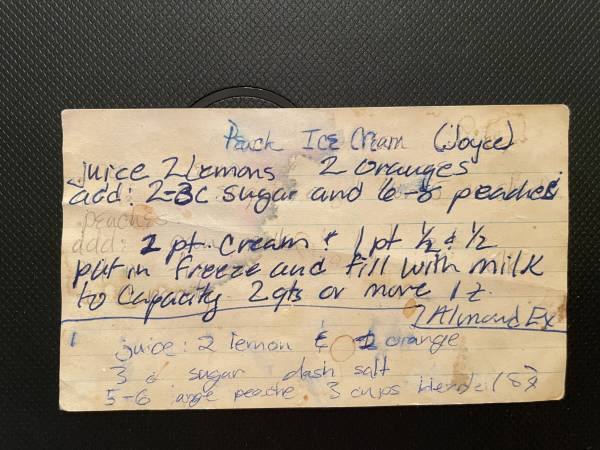 Peach Ice Cream (Joyce)
juice 2 lemons 2 oranges
add: 2-3c sugar and 6-8 peaches
peaches
add: 2 pt. cream & 1 pt ½ & ½
put in freeze and fill with milk
to capacity 2 qts or more 1 t.
Almond Ex
juice: 2 lemon & orange
3 c sugar dash salt
5-6 large peache 3 cups